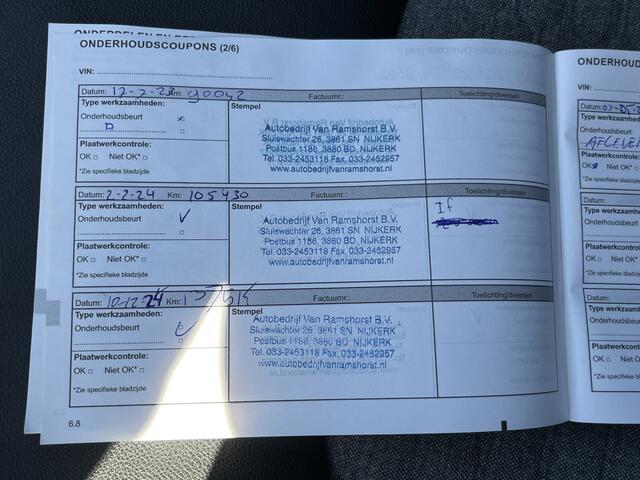 ONDERHOUDSCOUPONS (2/6)
VIN:
Datum: 17-2-23 Km: 90042 Factuurnr.: Toelichting/diversen
Type werkzaamheden: Stempel
Onderhoudsbeurt
Plaatwerkcontrole:
OK □ Niet OK* □
*Zie specifieke bladzijde
Autobedrijf Van Ramshorst B.V.
Sluiswachter 26, 3861 SN NIJKERK
Postbus 1186, 3860 BD NIJKERK
Tel. 033-2453118 Fax. 033-2462957
www.autobedrijfvanramshorst.nl
Datum: 2-2-24 Km: 105430 Factuurnr.: Toelichting/diversen
Type werkzaamheden: Stempel
Onderhoudsbeurt
Plaatwerkcontrole:
OK □ Niet OK* □
*Zie specifieke bladzijde
Autobedrijf Van Ramshorst B.V.
Sluiswachter 26, 3861 SN NIJKERK
Postbus 1186, 3860 BD NIJKERK
Tel. 033-2453118 Fax. 033-2462957
www.autobedrijfvanramshorst.nl
If
Datum: 10-12-24 Km: Factuurnr.: Toelichting/diversen
Type werkzaamheden: Stempel
Onderhoudsbeurt
Plaatwerkcontrole:
OK □ Niet OK* □
*Zie specifieke bladzijde
Autobedrijf Van Ramshorst B.V.
Sluiswachter 26, 3861 SN NIJKERK
Postbus 1186, 3860 BD NIJKERK
Tel. 033-2453118 Fax. 033-2462957
www.autobedrijfvanramshorst.nl
6.8
ONDERHOUD
VIN:
Datum:
Type werkzaam
Onderhoudsbeurt
Plaatwerkcontro
OK Niet OK
*Zie specifieke bladz
Datum:
Type werkzaam
Onderhoudsbeurt
Plaatwerkcontro
OK □ Niet OK
*Zie specifieke bladz
Datum:
Type werkzaam
Onderhoudsbeurt
Plaatwerkcontro
OK □ Niet OK
*Zie specifieke bladz